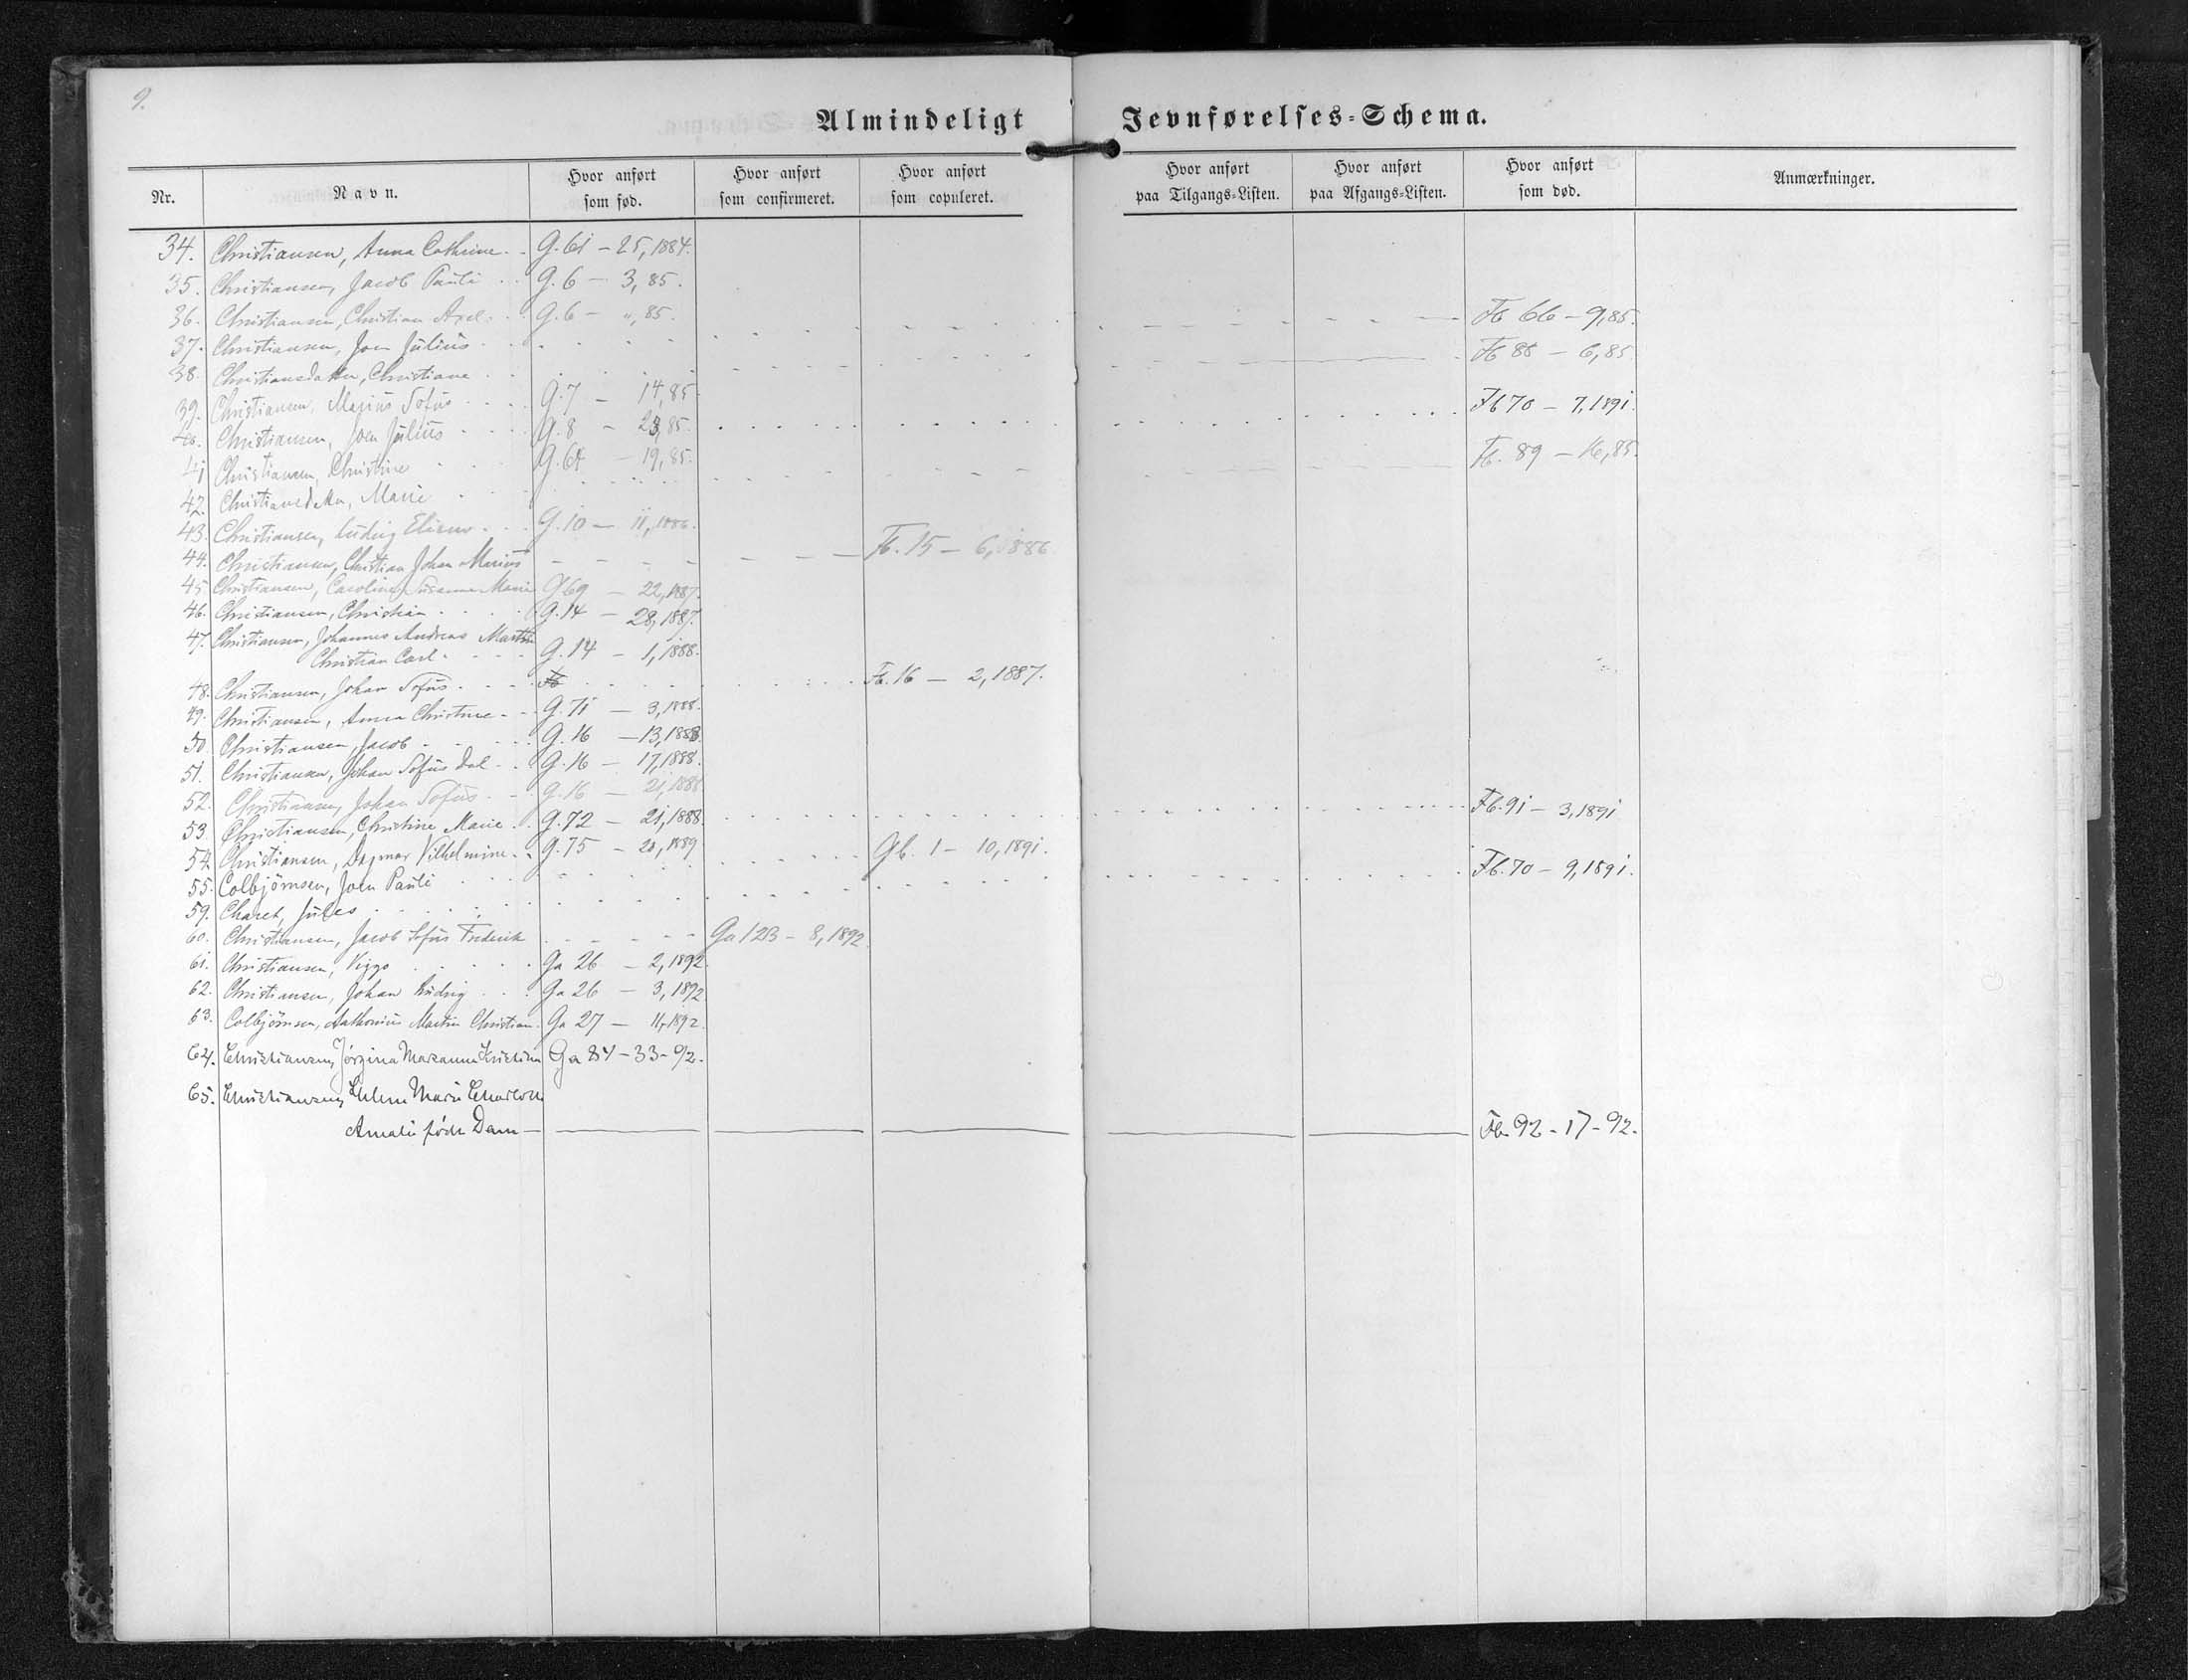 9.
Almindeligt Jevnførelses-Schema.
Nr. Navn. Hvor anført som fød. Hvor anført som confirmeret. Hvor anført som copuleret. Hvor anført paa Tilgangs-Listen. Hvor anført paa Afgangs-Listen. Hvor anført som død. Anmærkninger.
34. Christiansen, Anna Cathrine G. 61 – 25, 1884.
35. Christiansen, Jacob Pauli G. 6 – 3, 85.
36. Christiansen, Christian Axel G. 6 – ", 85. Fb 66 – 9, 85.
37. Christiansen, Joen Julius Fb 88 – 6, 85
38. Christiansdatter, Christiane
39. Christiansen, Marius Sofus G. 7 – 14, 85 Fb 70 – 7, 1891.
40. Christiansen, Joen Julius G. 8 – 23, 85.
41 Christiansen, Christine G. 64 – 19, 85. Fb. 89 – 16, 85.
42. Christiansdatter, Marie
43. Christiansen, Ludvig G. 10 – 11, 1886.
44. Christiansen, Christian Johan Marius Fb. 15 – 6, 1886
45. Christiansen, Caroline Susanna Marie G 69 – 22, 1887.
46. Christiansen, Christian G. 14 – 28, 1887.
47. Christiansen, Johannes Andreas Martin
Christian Carl G. 14 – 1, 1888.
48. Christiansen, Johan Sofus Fb Fb. 16 – 2, 1887.
49. Christiansen, Anna Christine G. 71 – 3, 1888.
50. Christiansen, Jacob G. 16 – 13, 1888.
51. Christiansen, Johan Sofus Dal G. 16 – 17, 1888.
52. Christiansen, Johan Sofus G. 16 – 21, 1888
53. Christiansen, Christine Marie G. 72 – 21, 1888. Fb. 91 – 3, 1891
54. Christiansen, Dagmar Vilhelmine G. 75 – 20, 1889
55. Colbjörnsen, Joen Pauli Gb. 1 – 10, 1891. Fb. 70 – 9, 1891.
59. Charet, Jules
60. Christiansen, Jacob Sofus Frederik Ga 123 – 8, 1892.
61. Christiansen, Viggo Ga 26 – 2, 1892.
62. Christiansen, Johan Ludvig Ga 26 – 3, 1892
63. Colbjörnsen, Anthonius Martin Christian Ga 27 – 11, 1892.
64. Christiansen, Jörgina Marianne Kristine Ga 84 – 33 – 92.
65. Christiansen, Marie
Amalie født Dam Fb. 92 – 17 – 92.